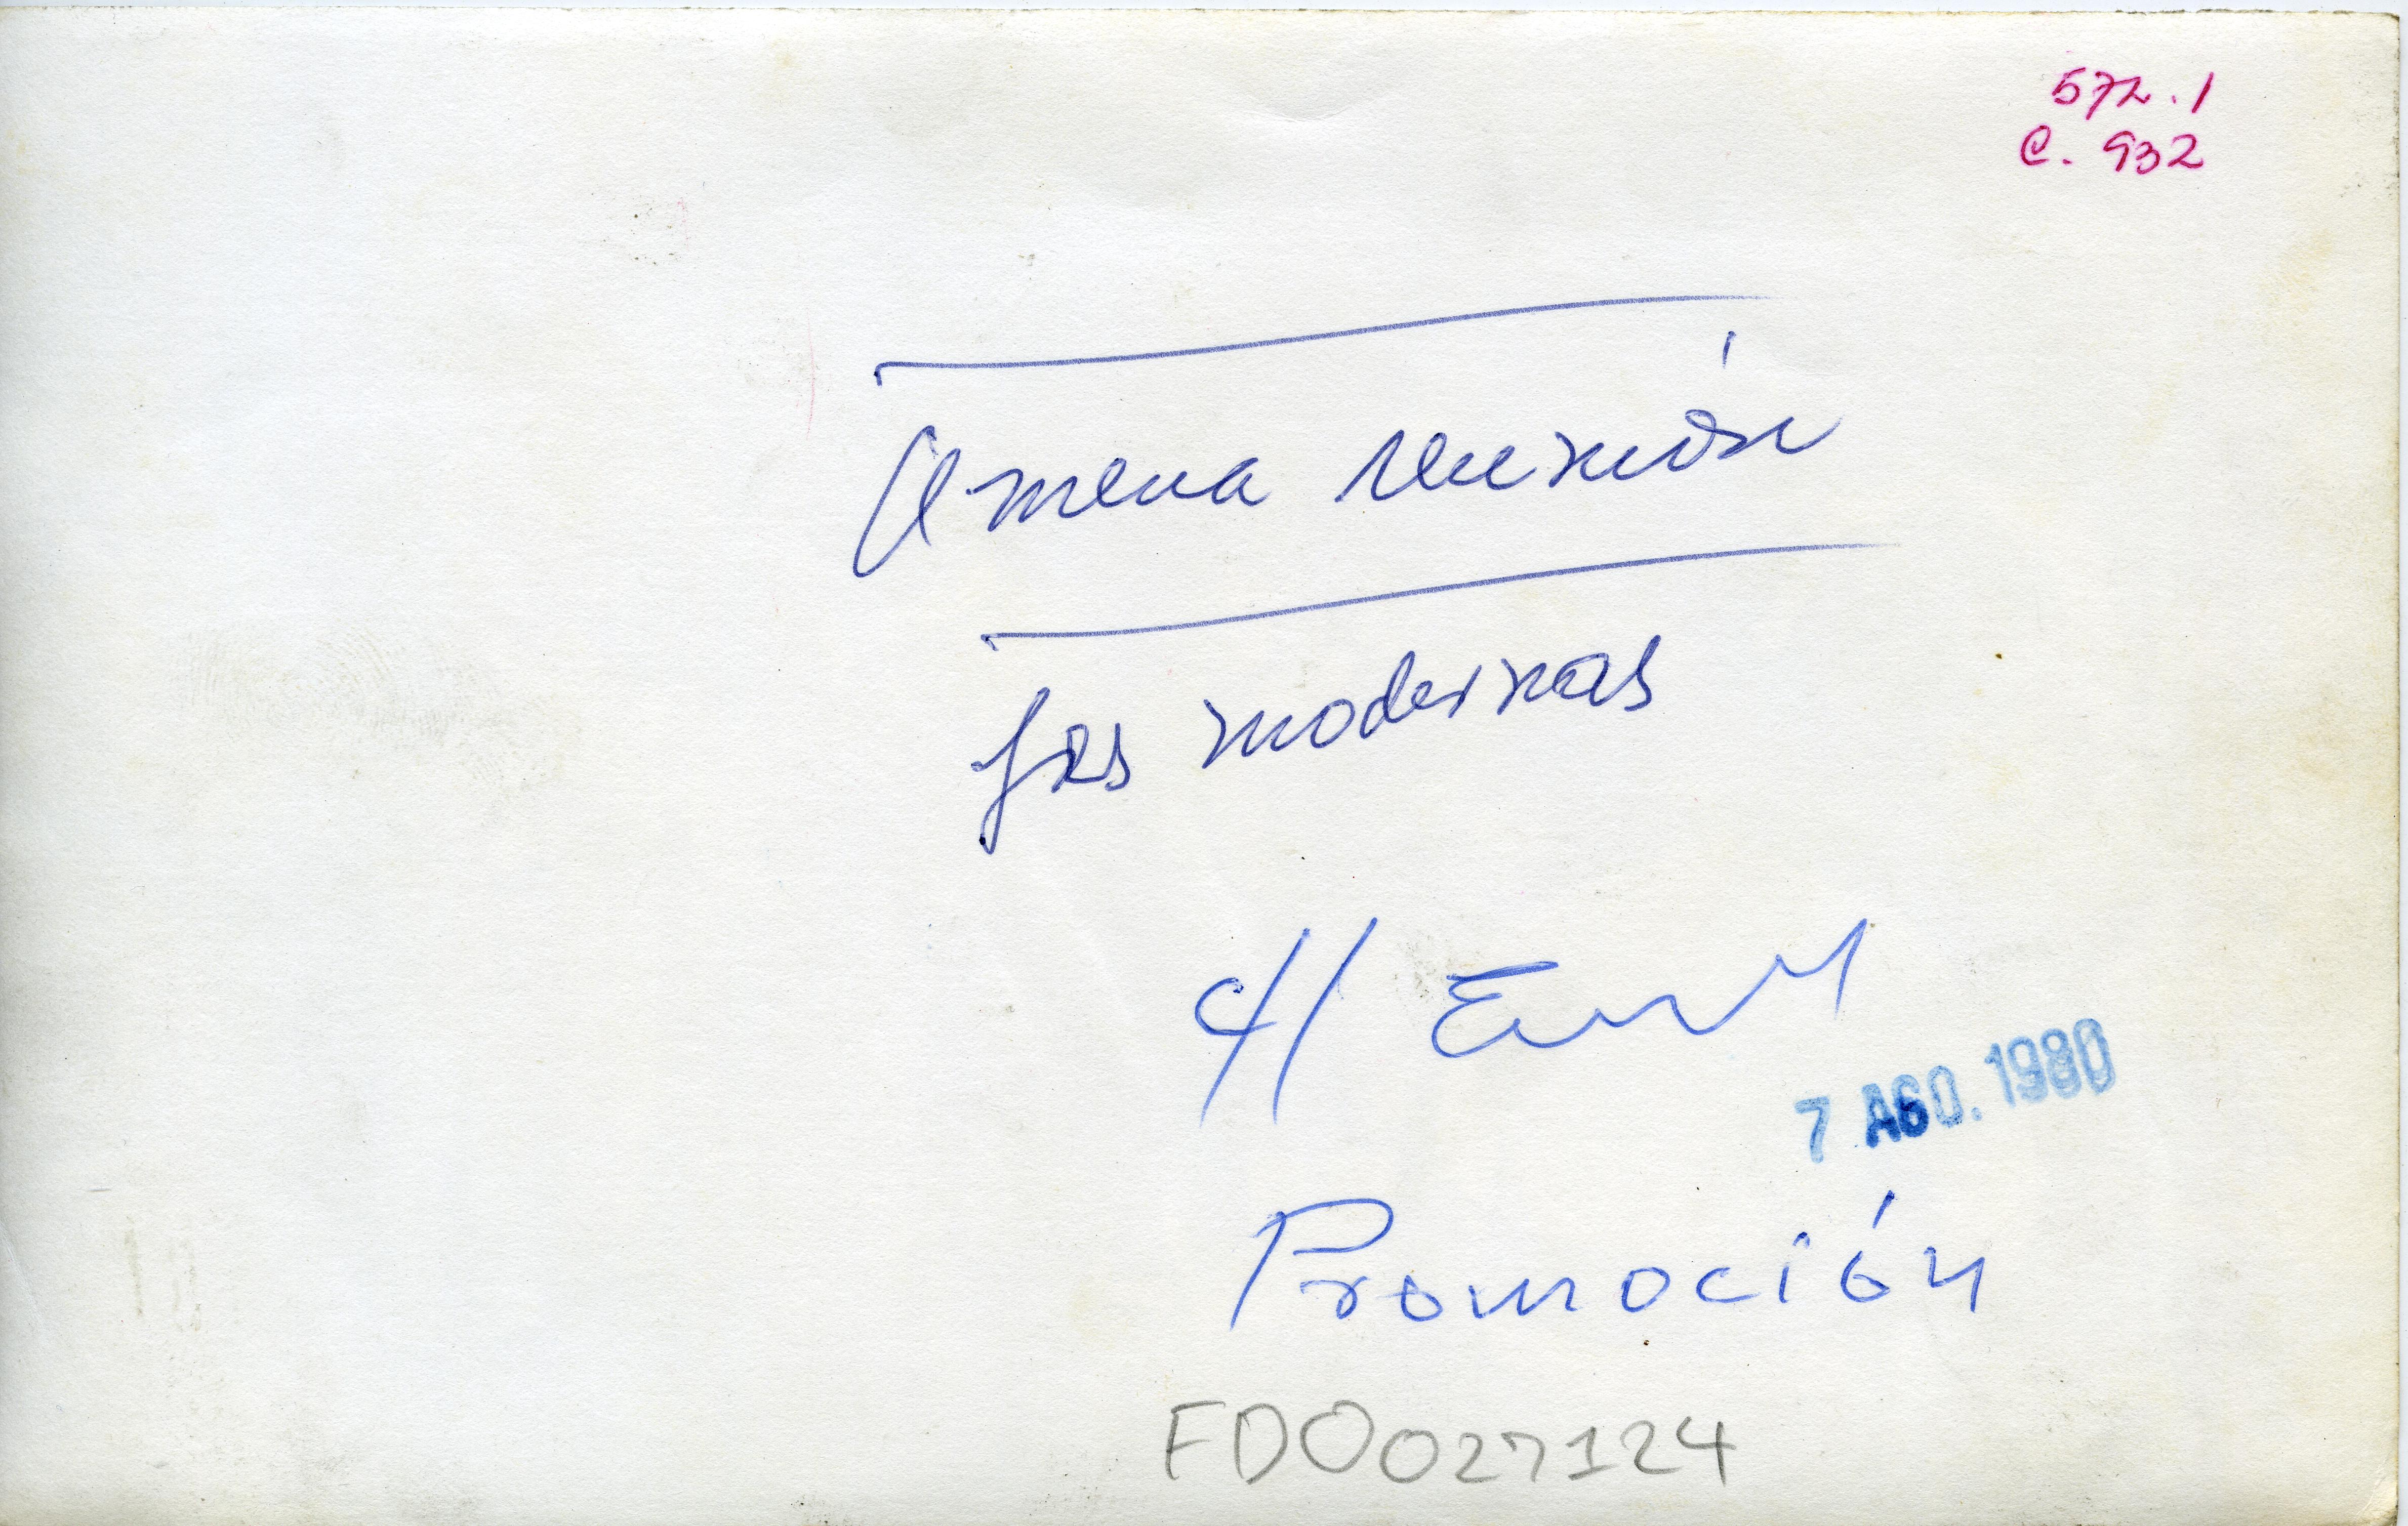 572.1
C. 932
Amena reunión
las modernas
7 AGO. 1980
Promoción
FDO027124